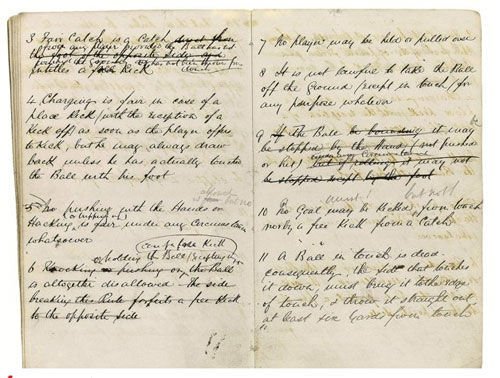 3 Fair Catch is a Catch direct from
from any player provided the Ball has not
the foot of the opposite side and
touched the Ground, or has not been thrown from
touch
entitles a free Kick
4 Charging is fair in case of a
place Kick (with the exception of a
Kick off) as soon as the player offers
to kick, but he may always draw
back unless he has actually touched
the Ball with his foot
5 No pushing with the Hands or
or tripping up
Hacking is fair under any Circumstances
whatsoever
holding the Ball
6 Knocking or pushing on the Ball
is altogether disallowed The side
breaking this Rule forfeits a free Kick
to the opposite side
7 No player may be held or pulled over
8 It is not lawful to take the Ball
off the Ground (except in touch) for
any purpose whatever
9 If the Ball be bounding it may
be stopped by the Hand (not pushed
or hit) but if rolling it may not
be stopped except by the foot
but not
10 No Goal may be kicked from touch
nor by a free Kick from a Catch
11 A Ball in touch is dead
consequently, the side that touches
it down, must bring it to the edge
of touch, & throw it straight out
at least six yards from touch